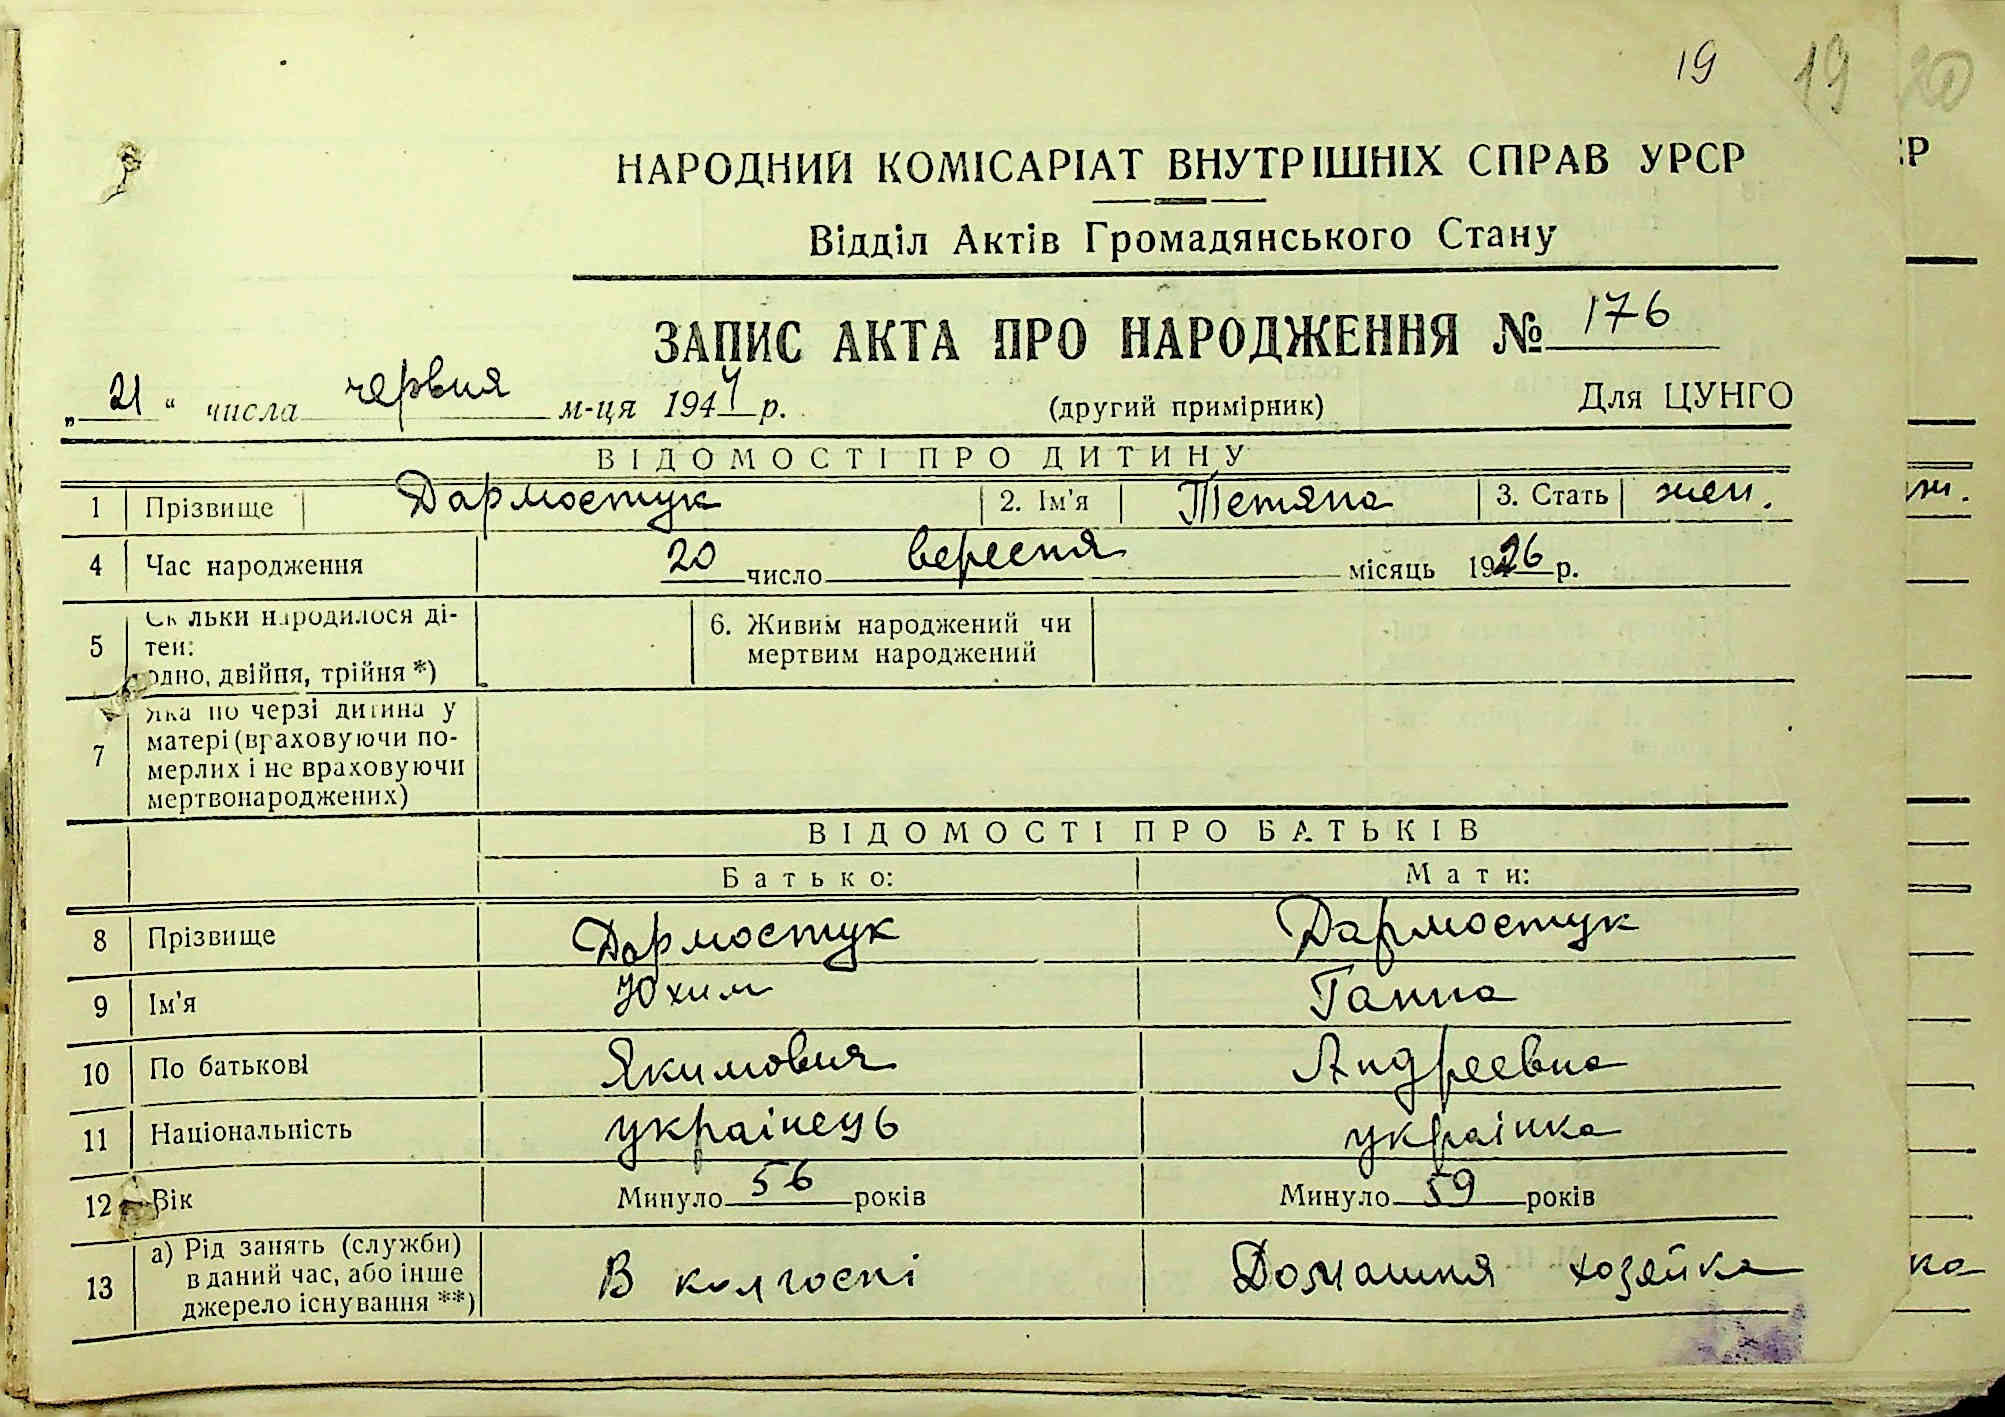 19 19 20
НАРОДНИЙ КОМІСАРІАТ ВНУТРІШНІХ СПРАВ УРСР
Відділ Актів Громадянського Стану
ЗАПИС АКТА ПРО НАРОДЖЕННЯ № 176
„ 21 “ числа червня м-ця 1944 р. (другий примірник) Для ЦУНГО
ВІДОМОСТІ ПРО ДИТИНУ
1 Прізвище Дармостук 2. Ім'я Тетяна 3. Стать жен.
4 Час народження 20 число вересня місяць 1926 р.
5 Скільки народилося ді-
тей:
одно, двійня, трійня *)
6. Живим народжений чи
мертвим народжений
7 Яка по черзі дитина у
матері (враховуючи по-
мерлих і не враховуючи
мертвонароджених)
ВІДОМОСТІ ПРО БАТЬКІВ
Батько: Мати:
8 Прізвище Дармостук Дармостук
9 Ім'я Юхим Ганна
10 По батькові Якимовия Андреевна
11 Національність українець українка
12 Вік Минуло 56 років Минуло 59 років
13 а) Рід занять (служби)
в даний час, або інше
джерело існування **)
В колгоспі Домашня хозяйка